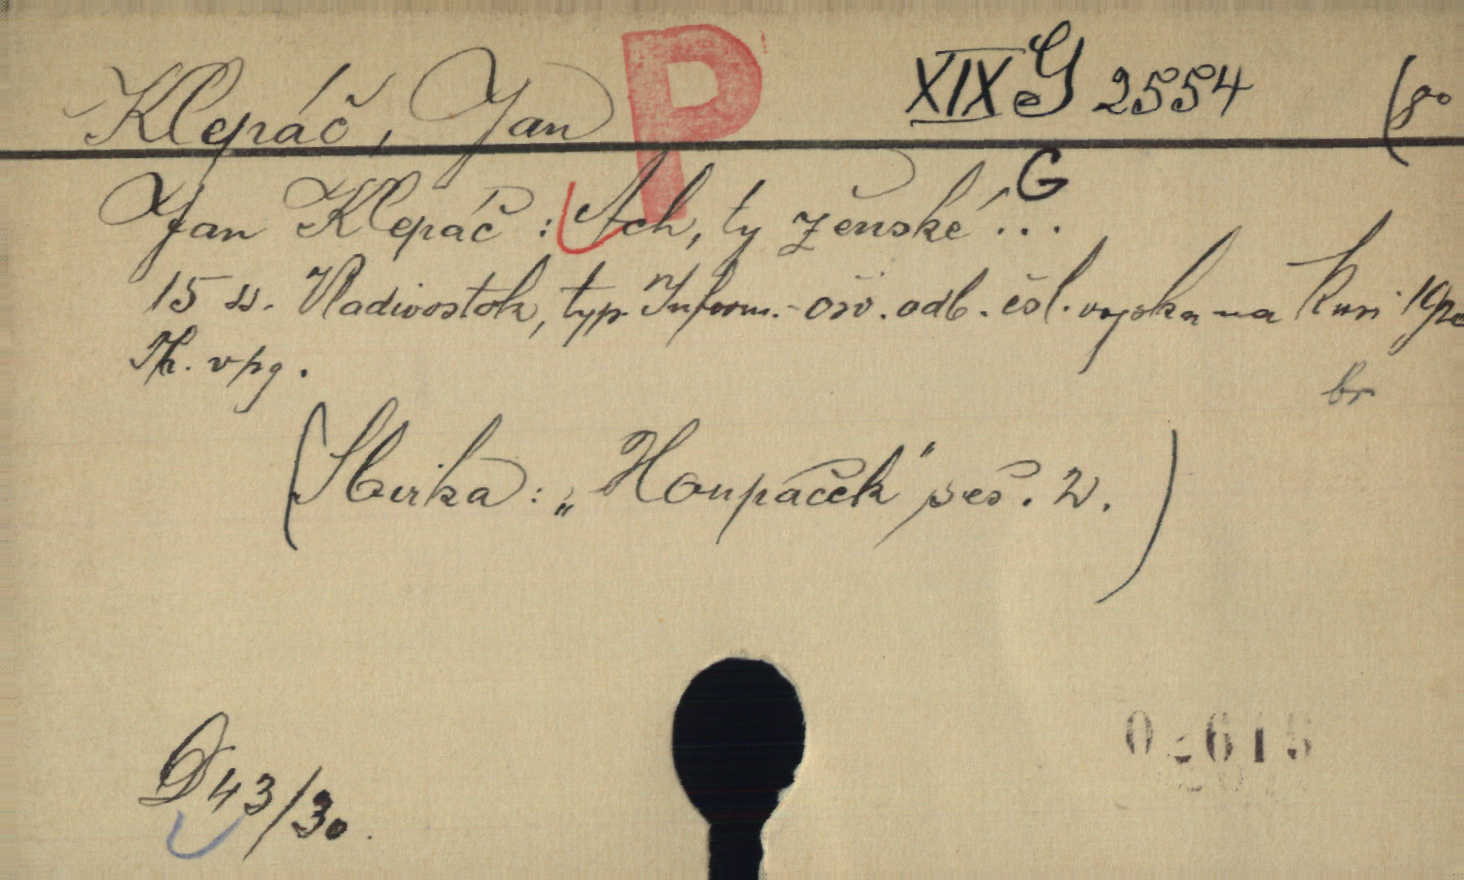 Klepáč, Jan P XIX G 2554 (8°
G
Jan Klepáč: Ach, ty ženské...
15 s. Vladivostok, typ. Inform.-osv. odb. čsl. vojska na Rusi 192
Th. vpg.
br
(Sbírka: „Houpáček" seš. 2.)
02615
D 43/30.